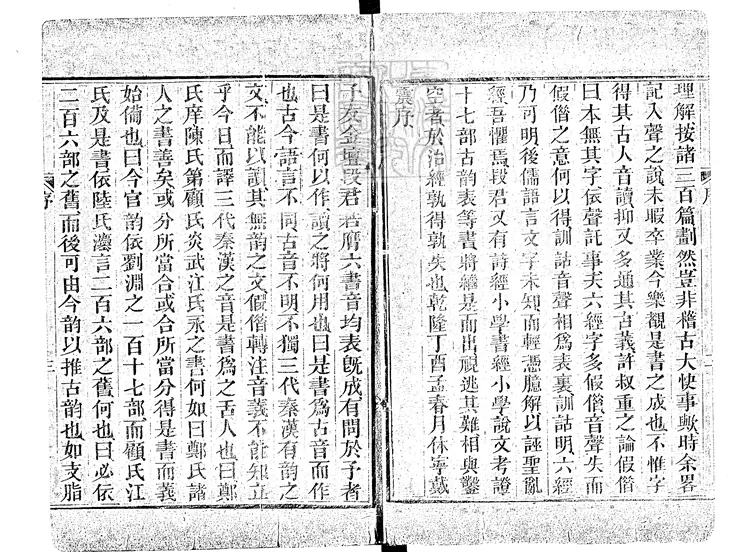 理解按諸三百篇劃然豈非稽古大快事歟時余畧
記入聲之說未暇卒業今樂覩是書之成也不惟字
得其古人音讀抑又多通其古義許叔重之論假借
曰本無其字依聲託事夫六經字多假借音聲失而
假借之意何以得訓詁音聲相爲表裏訓詁明六經
乃可明後儒語言文字未知而輕憑臆解以誣聖亂
經吾懼焉段君又有詩經小學書經小學說文考證
十七部古韵表等書將繼是而出視逃其難相與鑿
空者於治經孰得孰失也乾隆丁酉孟春月休寧戴
震序
序
二
子友金壇段君若膺六書音均表旣成有問於予者
曰是書何以作讀之將何用也曰是書爲古音而作
也古今語言不同古音不明不獨三代秦漢有韵之
文不能以讀其無韵之文假借轉注音義不能知立
乎今日而譯三代秦漢之音是書爲之舌人也曰鄭
氏庠陳氏第顧氏炎武江氏永之書何如曰鄭氏諸
人之書善矣或分所當合或合所當分得是書而義
始備也曰今官韵依劉淵之一百十七部而顧氏江
氏及是書依陸氏灋言二百六部之舊何也曰必依
二百六部之舊而後可由今韵以推古韵也如支脂
序
三